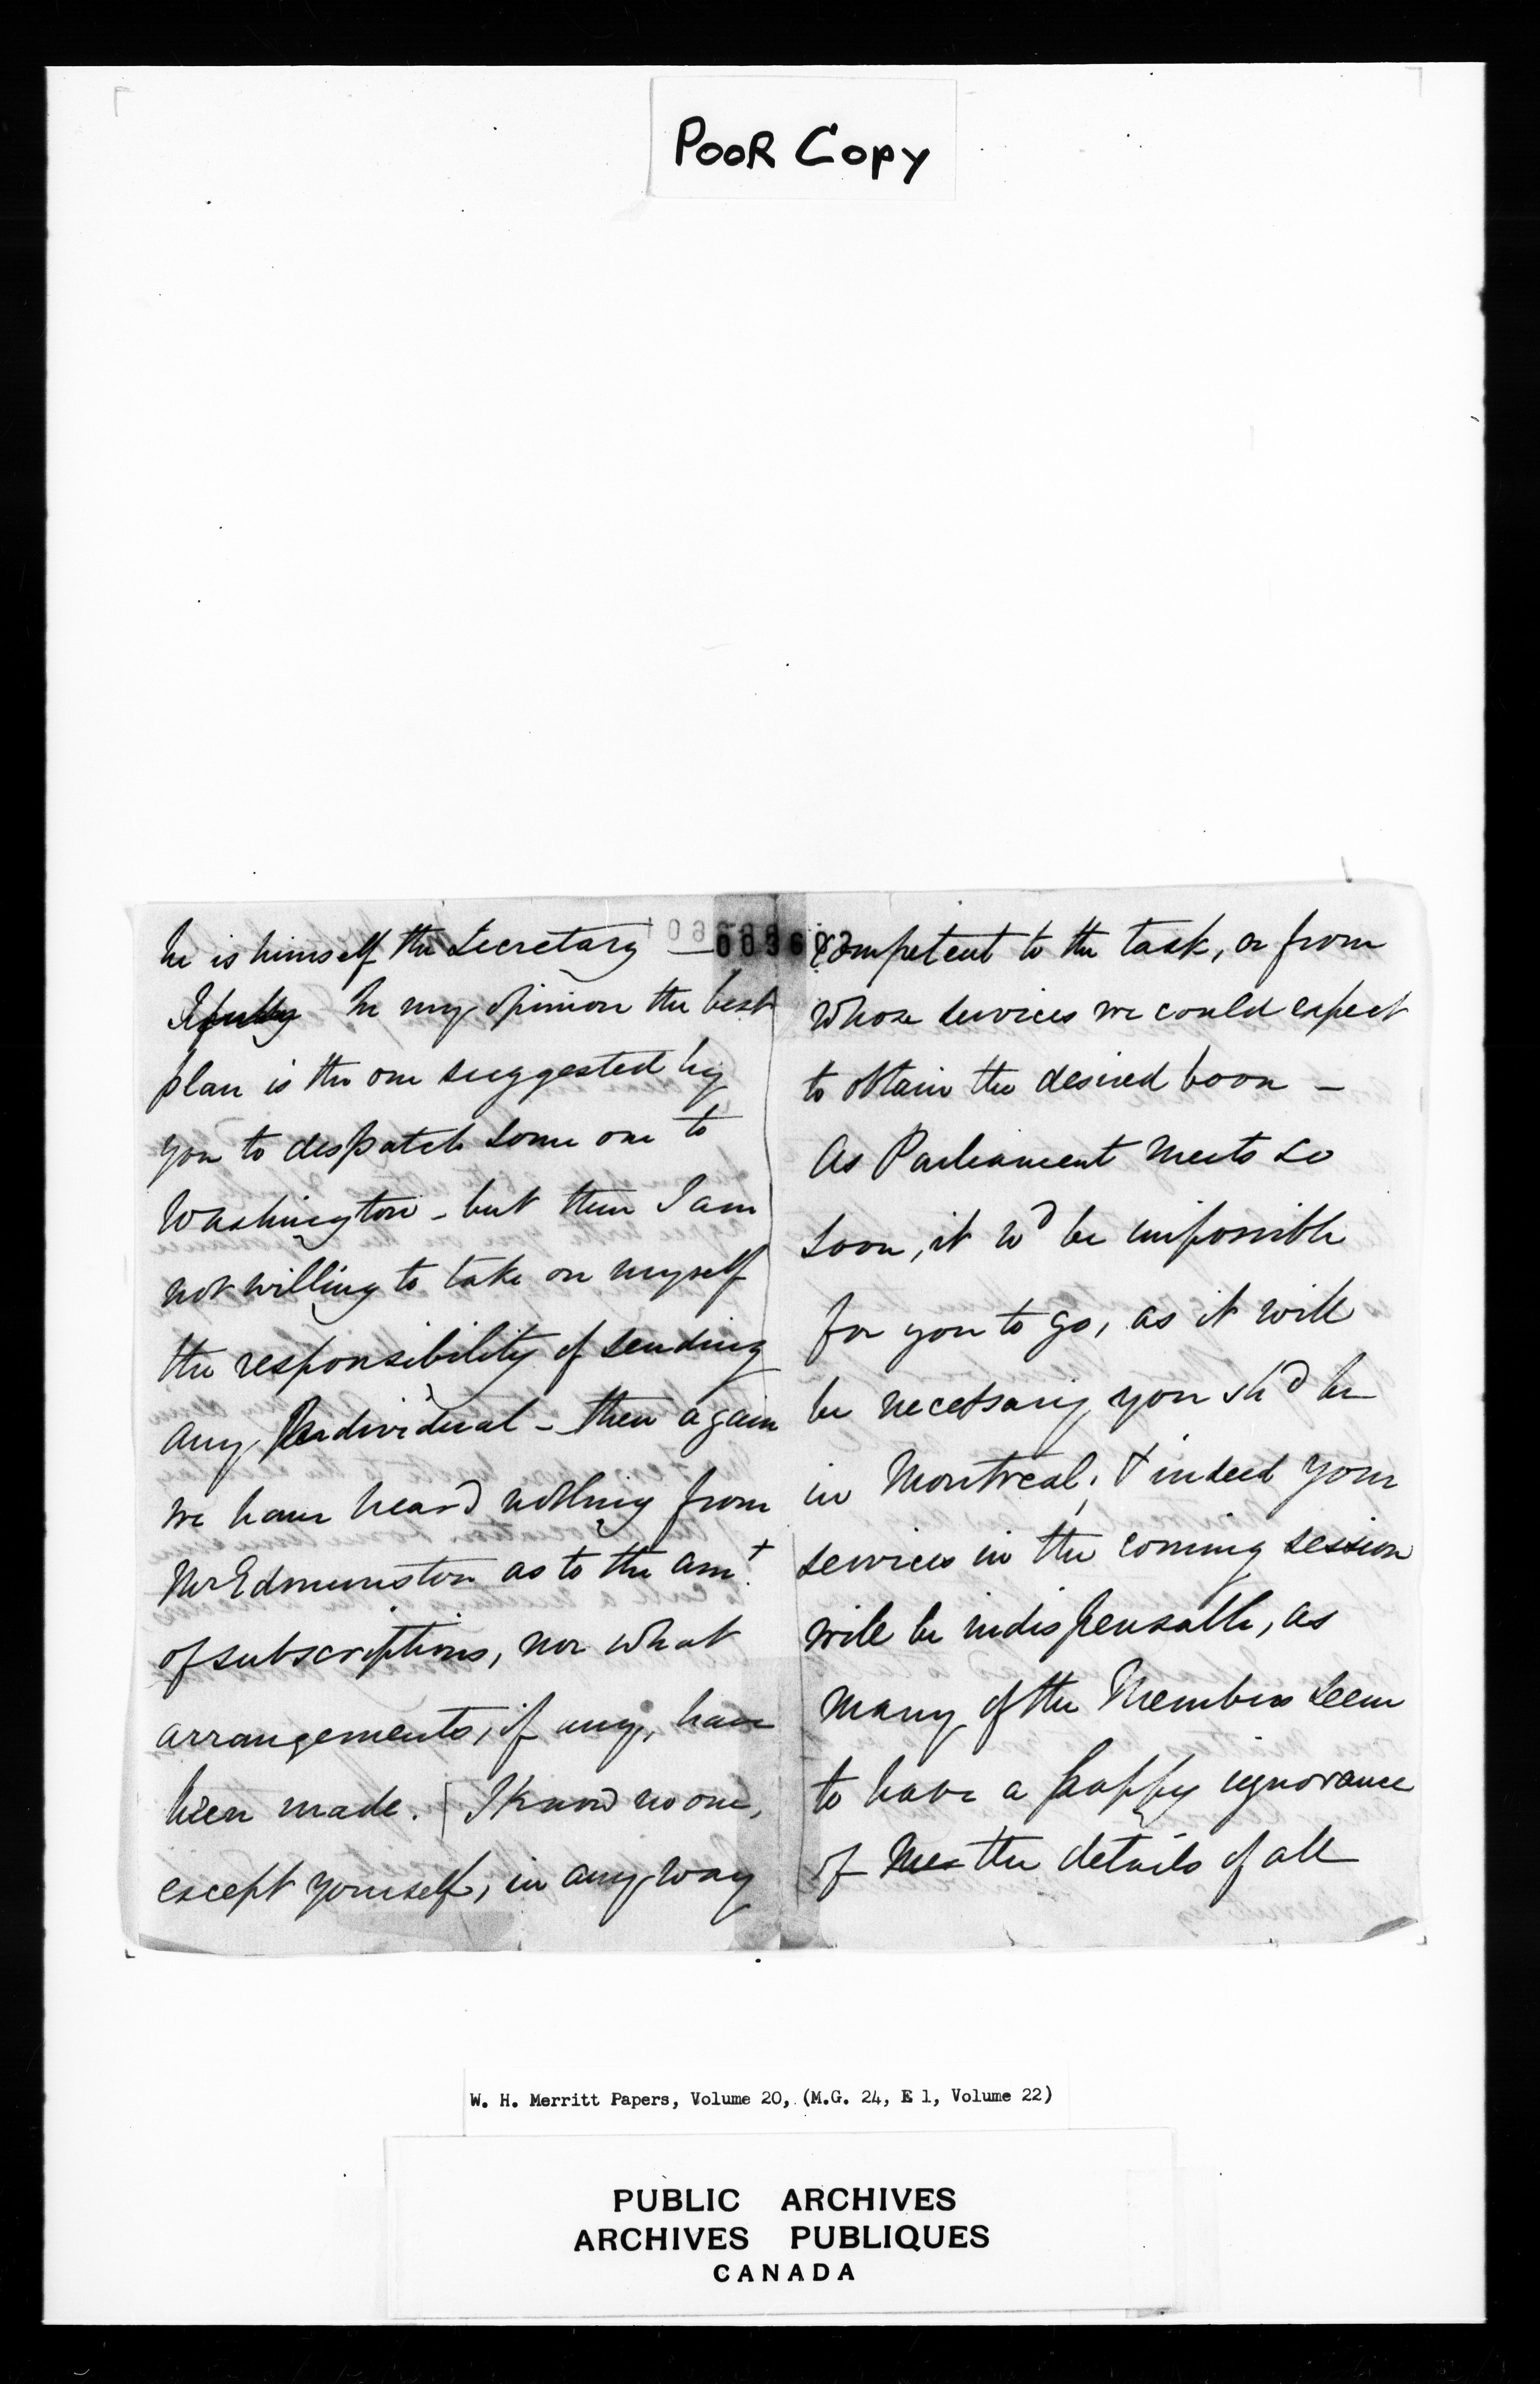 POOR COPY
he is himself the Secretary —
I fully In my opinion the best
plan is the one suggested by
you to despatch some one to
Washington - but then I am
not willing to take on myself
the responsibility of sending
any individual - then again
we have heard nothing from
Mr Edmunston as to the amt.
of subscriptions, nor what
arrangements, if any, have
been made. [I know no one,
except yourself, in any way
competent to the task, or from
whose services we could expect
to obtain the desired boon -
As Parliament meets so
soon, it wd be impossible
for you to go, as it will
be necessary you shd be
in Montreal; & indeed your
services in the coming session
will be indispensable, as
many of the Members seem
to have a happy ignorance
of the details of all
W. H. Merritt Papers, Volume 20, (M.G. 24, E 1, Volume 22)
PUBLIC ARCHIVES
ARCHIVES PUBLIQUES
CANADA